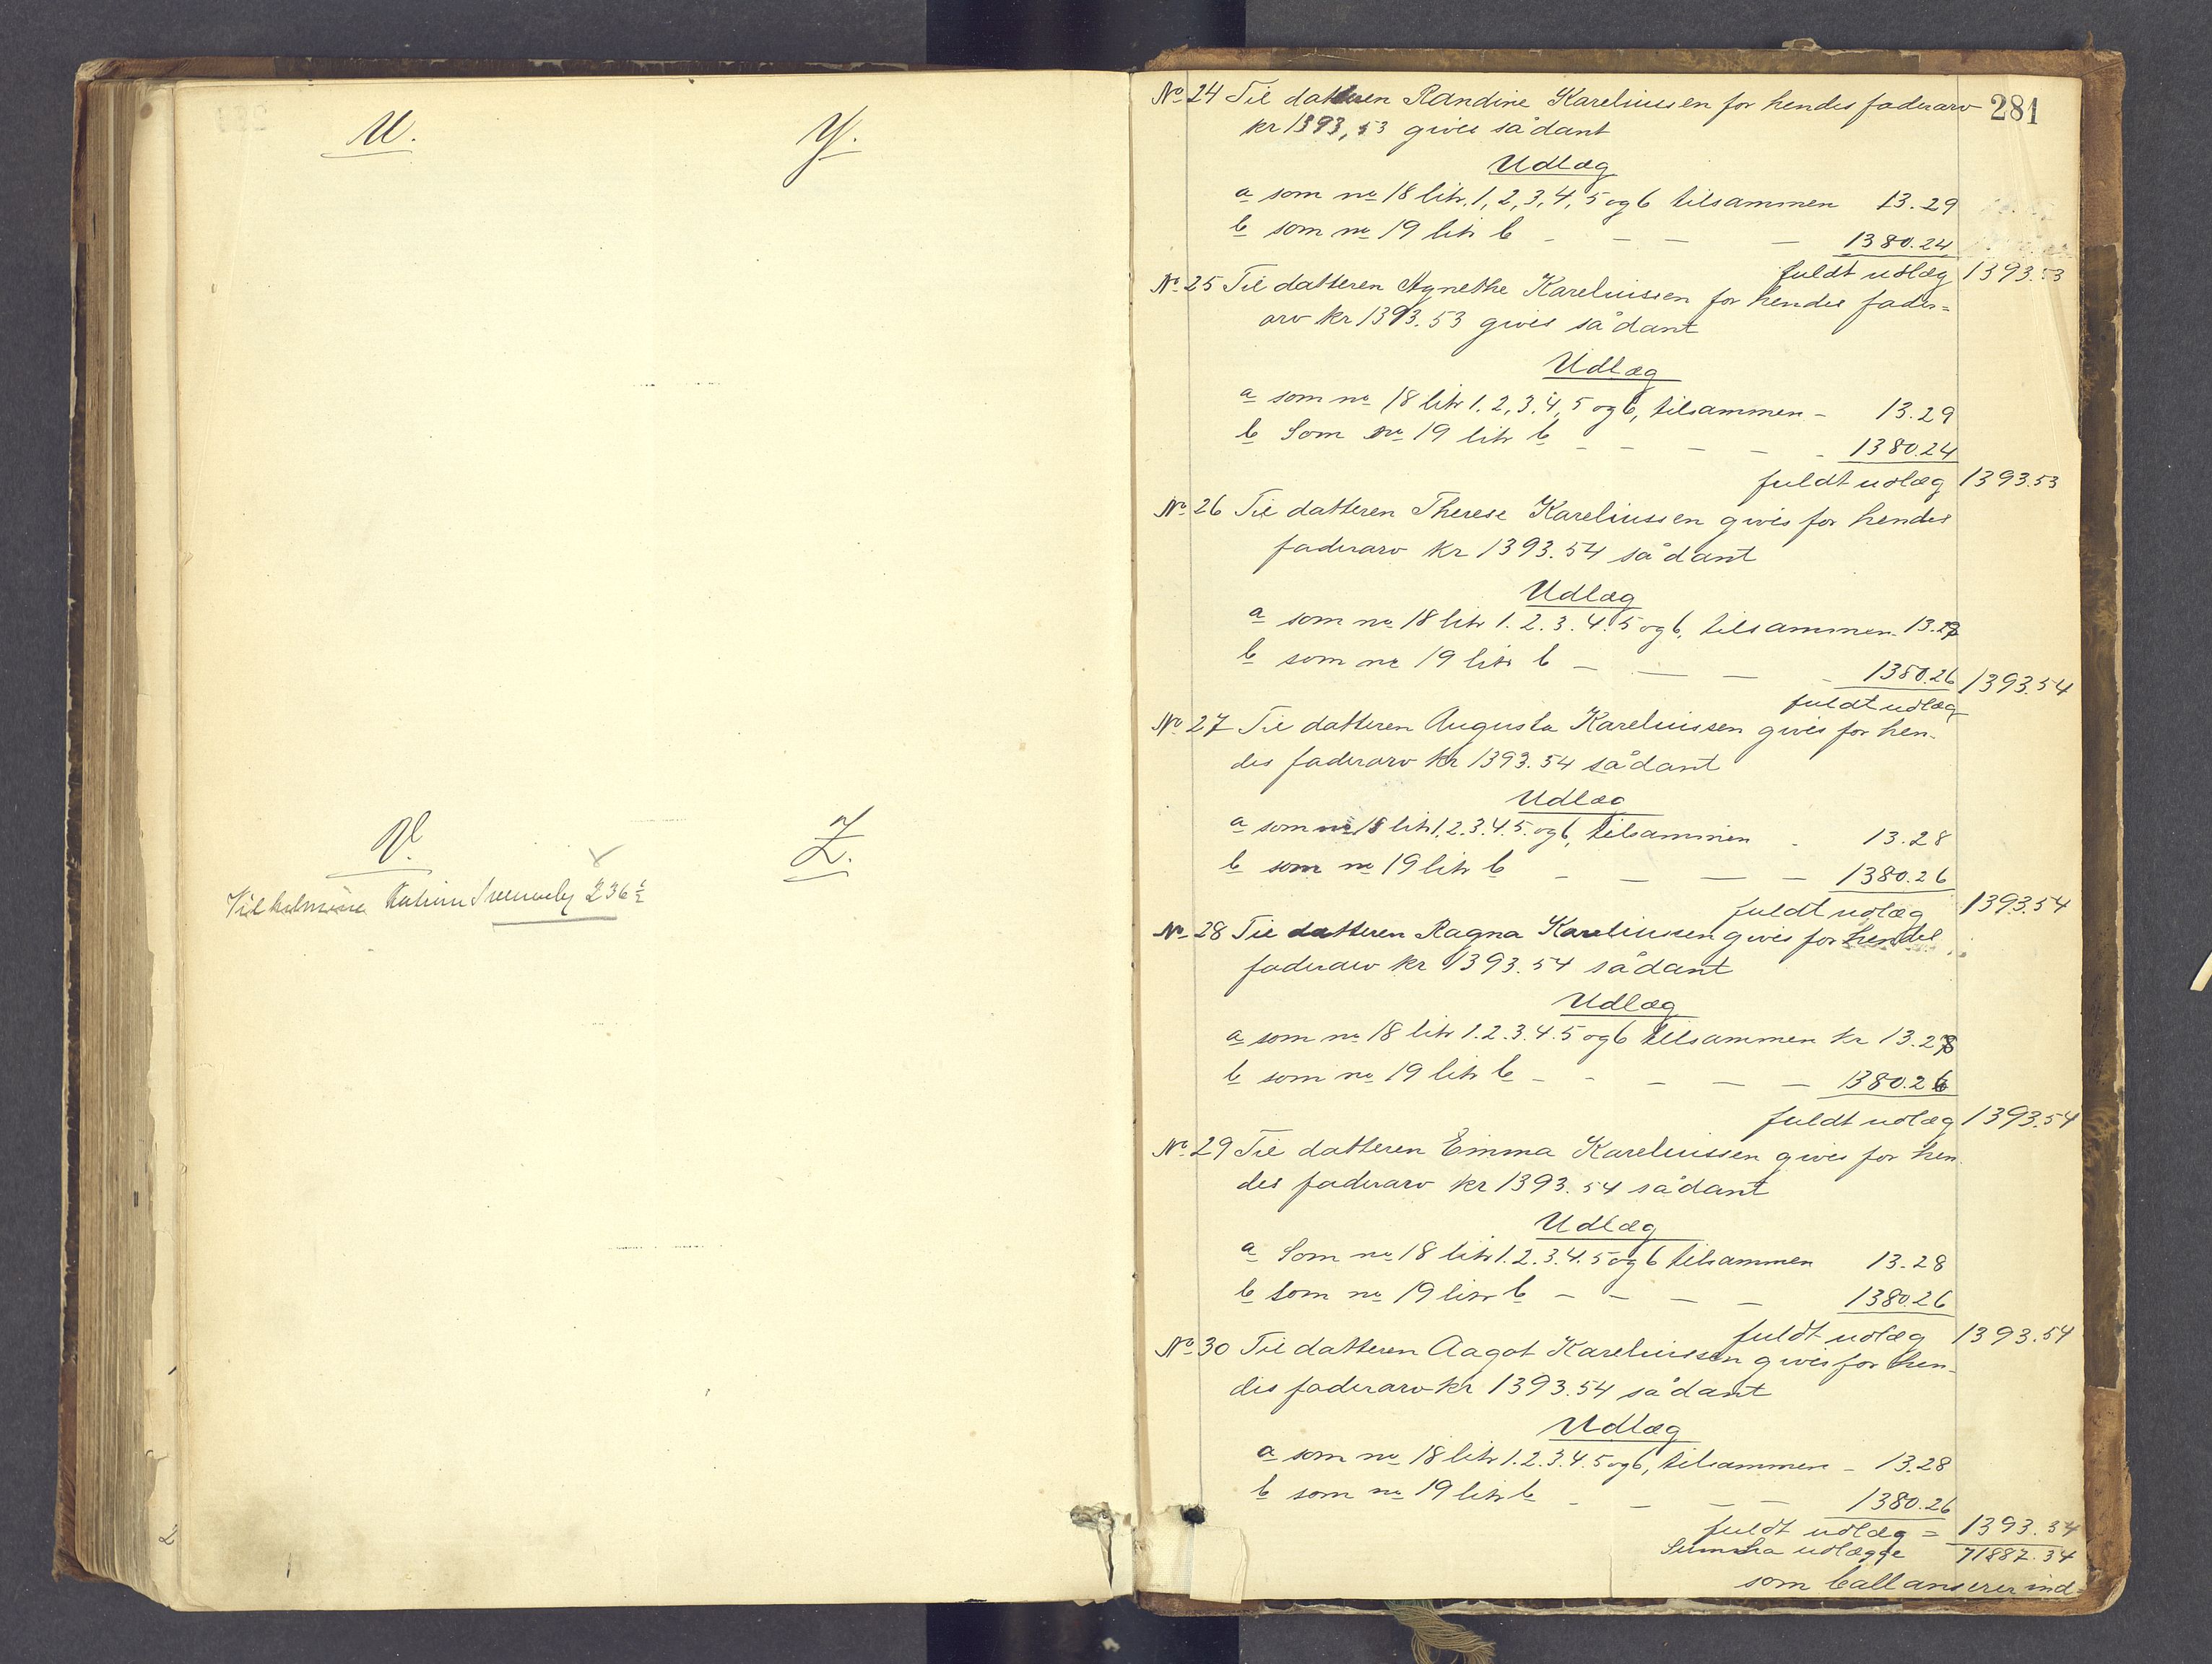 U.
Y.
V.
Z.
Vilhelmine 236
281
No 24 Til datteren Randine Kareliussen for hendes faderarv
kr 1393,53 gives sådant
Udlæg
a som no 18 litr. 1, 2, 3, 4, 5 og 6 tilsammen 13.29
b som no 19 litr b - - - - 1380.24
fuldt udlæg 1393.53
No 25 Til datteren Agnethe Kareliussen for hendes fader=
arv kr 1393.53 gives sådant
Udlæg
a som no 18 litr 1. 2, 3, 4, 5 og 6, tilsammen - 13.29
b Som no 19 litr b - - - - - 1380.24
fuldt udlæg 1393.53
No 26 Til datteren Therese Kareliussen gives for hendes
faderarv kr 1393.54 sådant
Udlæg
a som no 18 litr 1. 2. 3. 4. 5 og 6, tilsammen 13.28
b som no 19 litr b - - - - 1380.26 1393.54
fuldt udlæg
No 27 Til datteren Augusta Kareliussen gives for hen-
des faderarv kr 1393.54 sådant
Udlæg
a som no 18 litr 1. 2. 3. 4. 5. og 6, tilsammen - 13.28
b som no 19 litr b - - - - 1380.26
fuldt udlæg 1393.54
No 28 Til datteren Ragna Kareliussen gives for hendes
faderarv kr 1393.54 sådant
Udlæg
a som no 18 litr 1. 2. 3. 4. 5 og 6 tilsammen kr 13.28
b som no 19 litr b - - - - - 1380.26
fuldt udlæg 1393.54
No 29 Til datteren Emma Kareliussen gives for hen-
des faderarv kr 1393.54 sådant
Udlæg
a Som no 18 litr 1. 2. 3. 4. 5 og 6 tilsammen 13.28
b Som no 19 litr b - - - - 1380.26
fuldt udlæg 1393.54
No 30 Til datteren Aagot Kareliussen gives for hen-
des faderarv kr 1393.54 sådant
Udlæg
a som no 18 litr 1. 2. 3. 4. 5 og 6, tilsammen - 13.28
b som no 19 litr b - - - - 1380.26
fuldt udlæg = 1393.54
Summa udlægge 71887.34
som ballanserer ind=